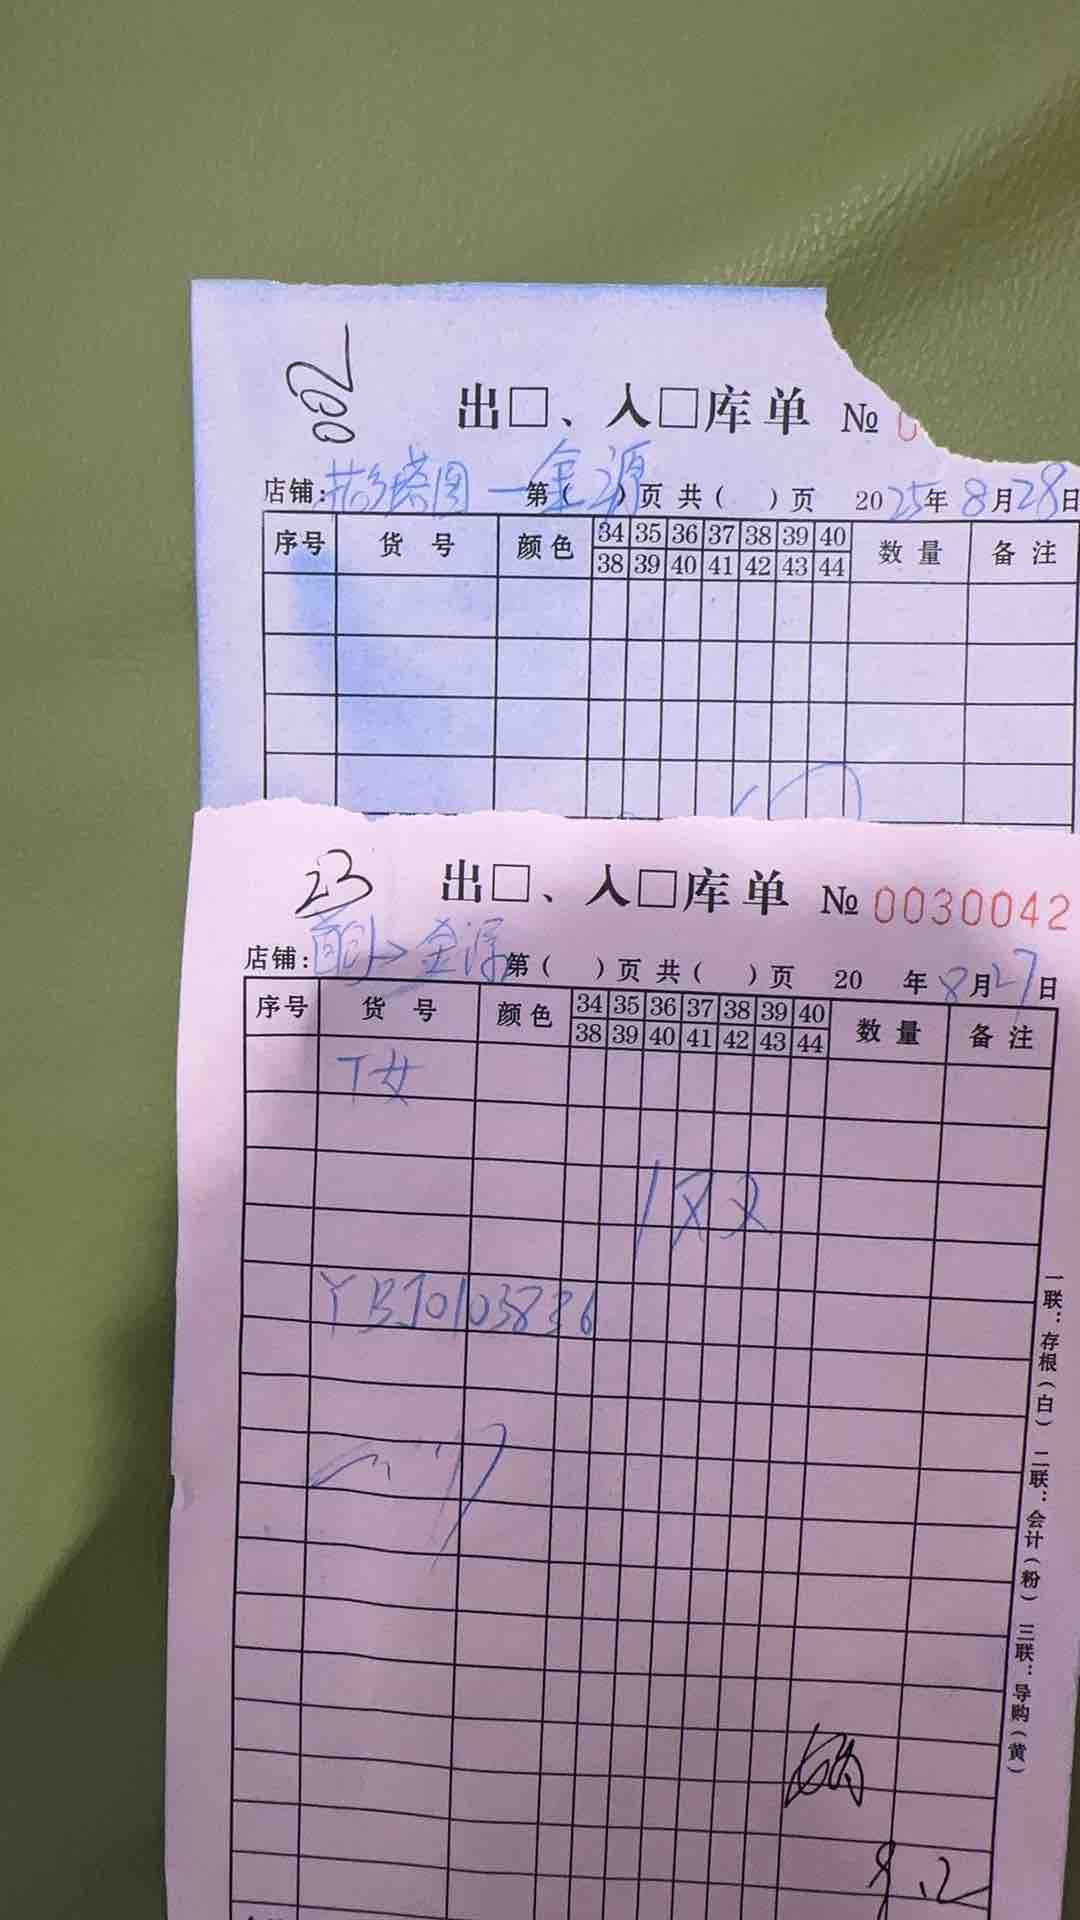 200
出□、入□库单 № 0
店铺: 金源 第( )页 共( )页 2025年8月28日
序号 货号 颜色 34 35 36 37 38 39 40 数量 备注
38 39 40 41 42 43 44
23
出□、入□库单 № 0030042
店铺: → 金源 第( )页 共( )页 20 年8月27日
序号 货号 颜色 34 35 36 37 38 39 40 数量 备注
38 39 40 41 42 43 44
T女
YBJ0103836
一联：存根（白） 二联：会计（粉） 三联：导购（黄）
9.2